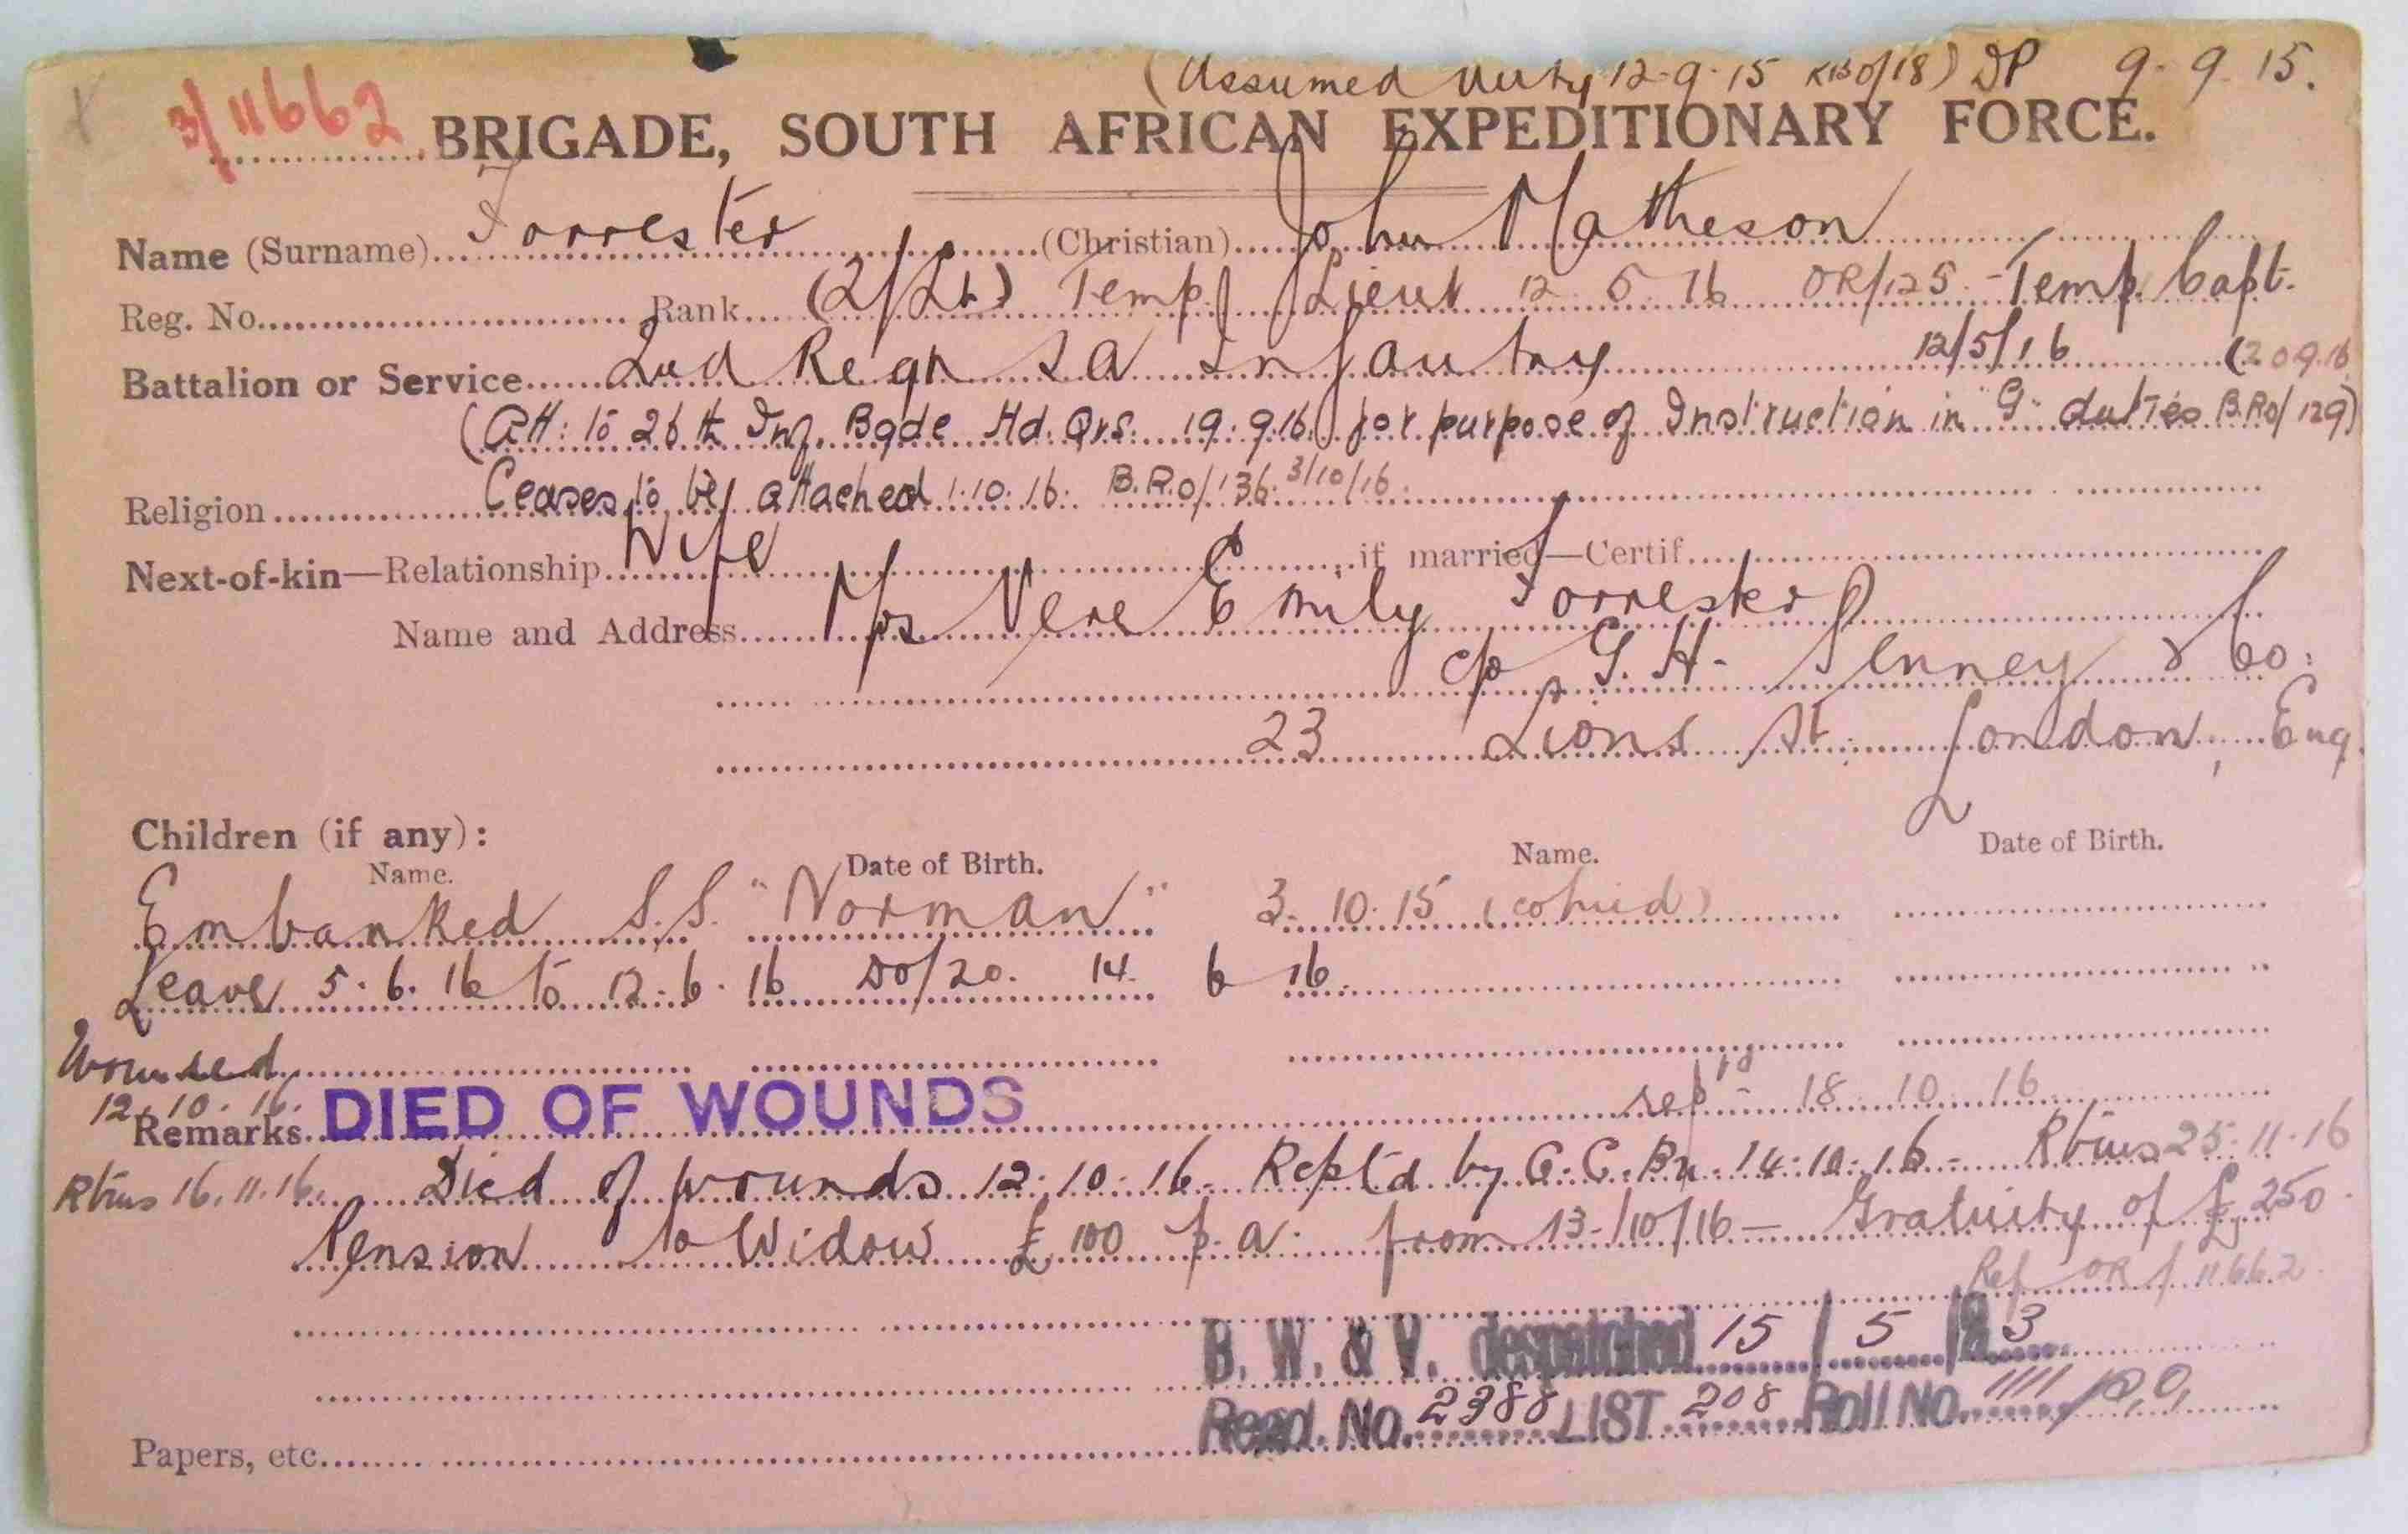 (Assumed duty 12-9-15 RBO/18) DP 9-9-15.
3/11662 BRIGADE, SOUTH AFRICAN EXPEDITIONARY FORCE.
Name (Surname) Forrester (Christian) John Matheson
Reg. No. Rank (2/Lt) Temp Lieut 12 5 16 OR/125 - Temp Capt.
Battalion or Service 2nd Regt S A Infantry 12/5/16 (20.9.16
(Att: to 26th Inf. Bgde Hd. Qrs. 19.9.16 for purpose of Instruction in "G" duties B.RO/129)
Religion Ceases to be attached 1.10.16. B.R.O/136 3/10/16
Next-of-kin—Relationship Wife, if married—Certif.
Name and Address Mrs Vere Emily Forrester
c/o G. H. Penney & Co:
23 Lions St. London, Eng
Children (if any):
Name. Date of Birth. Name. Date of Birth.
Embarked S.S. "Norman" 3.10.15
Leave 5.6.16 to 12.6.16 DO/20. 14 6 16.
Wounded
12.10.16. rep'd 18 10 16
Remarks DIED OF WOUNDS
16.11.16. Died of wounds 12.10.16. Rept'd by C.C. 14.10.16 - 25.11.16
Pension to Widow £100 p.a. from 13/10/16 — Gratuity of £250.
Ref OR/11662
B. W. & V. despatched 15/5/23
Regd. No. 2388 LIST 208 Roll No. 1111
Papers, etc.